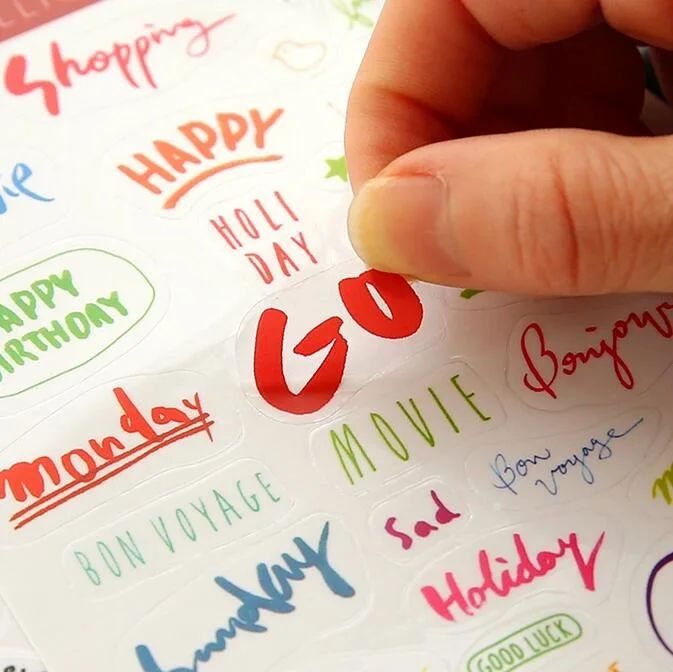 Shopping
HAPPY
HOLI
DAY
HAPPY
BIRTHDAY
GO
Bonjour
Monday
MOVIE
Bon
voyage
BON VOYAGE
Sad
Sunday
Holiday
GOOD LUCK